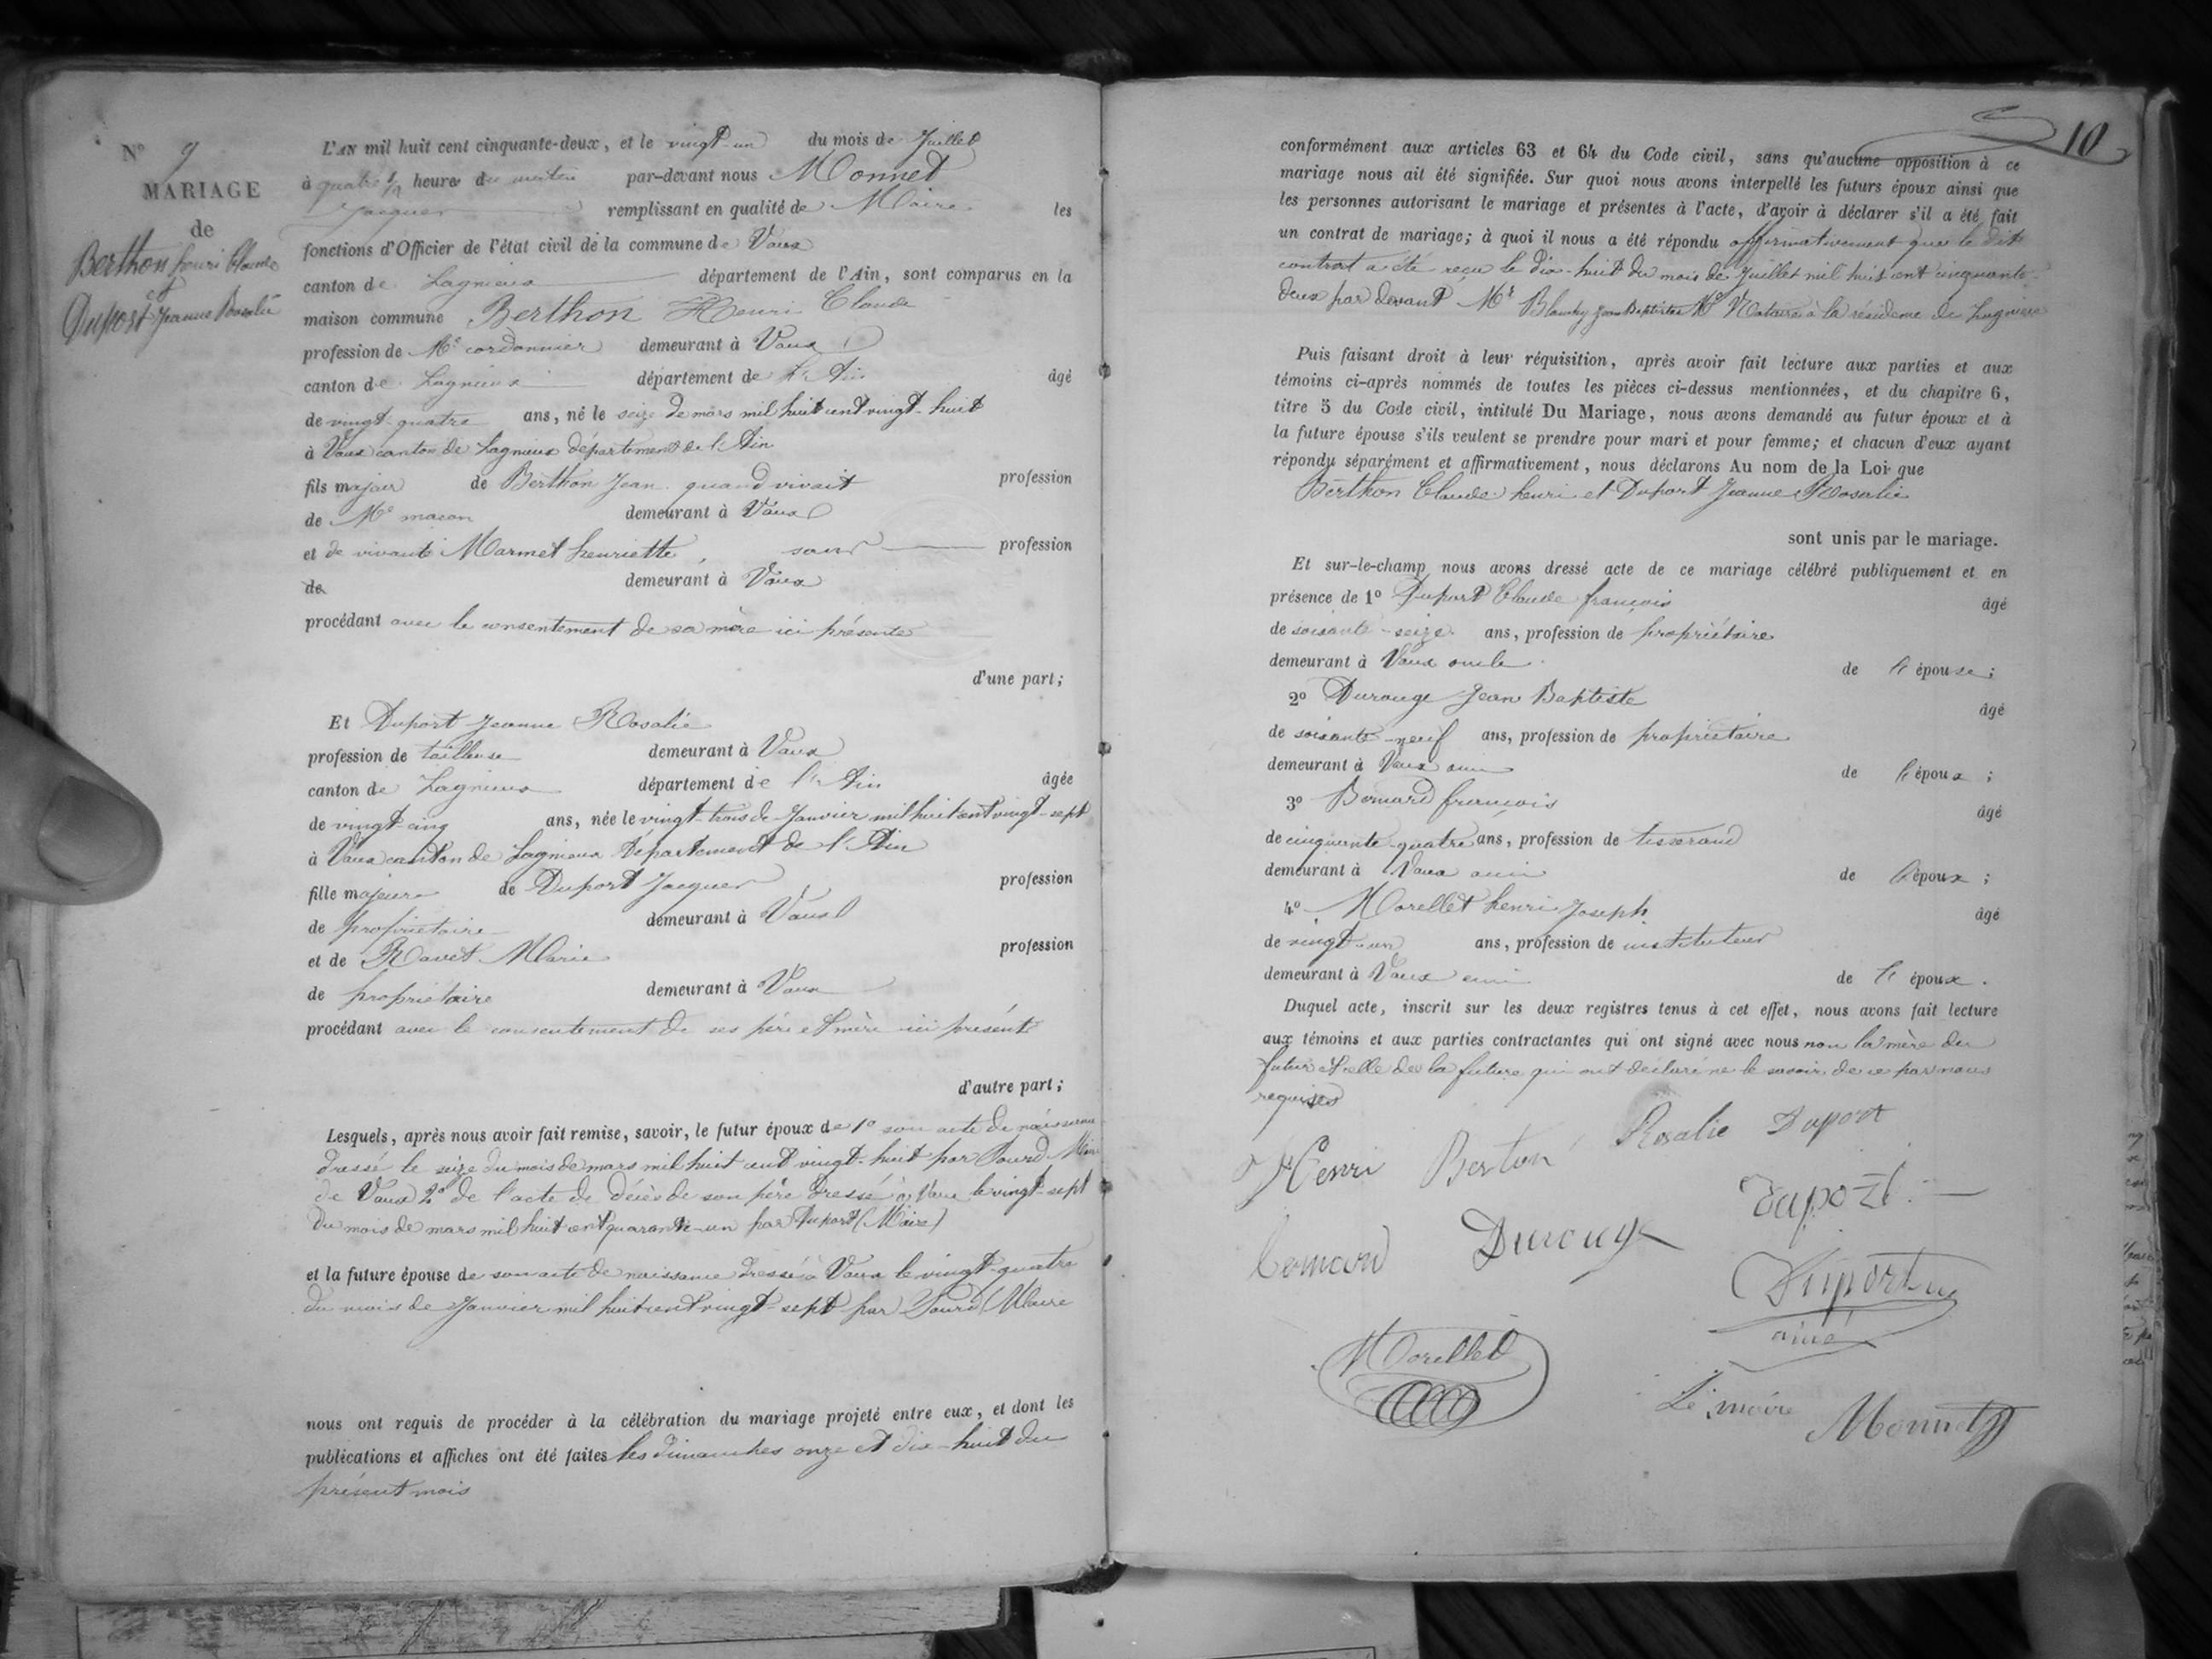 N° 9
MARIAGE
de
Berthon henri Claude
et
Duport Jeanne Rosalie
L'AN mil huit cent cinquante-deux, et le vingt-un du mois de Juillet
à quatre ½ heures du matin par-devant nous Monnet
Jacques remplissant en qualité de Maire les
fonctions d'Officier de l'état civil de la commune de Vaux
canton de Lagnieux département de l'Ain, sont comparus en la
maison commune Berthon Henri Claude
profession de Me cordonnier demeurant à Vaux
canton de Lagnieux département de l'Ain âgé
de vingt-quatre ans, né le seize de mars mil huit cent vingt-huit
à Vaux canton de Lagnieux département de l'Ain
fils majeur de Berthon Jean quand vivait profession
de Me macon demeurant à Vaux
et de vivante Marmet henriette, sans profession
de demeurant à Vaux
procédant avec le consentement de sa mère ici présente
d'une part;
Et Duport Jeanne Rosalie
profession de tailleuse demeurant à Vaux
canton de Lagnieux département de l'Ain âgée
de vingt-cinq ans, née le vingt-trois de Janvier mil huit cent vingt-sept
à Vaux canton de Lagnieux Département de l'Ain
fille majeure de Duport Jacques profession
de propriétaire demeurant à Vaux
et de Ravet Marie profession
de propriétaire demeurant à Vaux
procédant avec le consentement de ses père et mère ici présents
d'autre part;
Lesquels, après nous avoir fait remise, savoir, le futur époux de 1° son acte de naissance
dressé le seize du mois de mars mil huit cent vingt-huit par Sourd Maire
de Vaux 2° de l'acte de décès de son père dressé à Vaux le vingt-sept
du mois de mars mil huit cent quarante-un par Duport (Maire)
et la future épouse de son acte de naissance dressé à Vaux le vingt-quatre
du mois de Janvier mil huit cent vingt-sept par Sourd (Maire
nous ont requis de procéder à la célébration du mariage projeté entre eux, et dont les
publications et affiches ont été faites les dimanches onze et dix-huit du
présent mois
10
conformément aux articles 63 et 64 du Code civil, sans qu'aucune opposition à ce
mariage nous ait été signifiée. Sur quoi nous avons interpellé les futurs époux ainsi que
les personnes autorisant le mariage et présentes à l'acte, d'avoir à déclarer s'il a été fait
un contrat de mariage; à quoi il nous a été répondu affirmativement que le dit
contrat a été reçu le dix-huit du mois de Juillet mil huit cent cinquante-
deux par devant Me Jean Baptiste Me Notaire à la résidence de Lagnieux
Puis faisant droit à leur réquisition, après avoir fait lecture aux parties et aux
témoins ci-après nommés de toutes les pièces ci-dessus mentionnées, et du chapitre 6,
titre 5 du Code civil, intitulé Du Mariage, nous avons demandé au futur époux et à
la future épouse s'ils veulent se prendre pour mari et pour femme; et chacun d'eux ayant
répondu séparément et affirmativement, nous déclarons Au nom de la Loi que
Berthon Claude henri et Duport Jeanne Rosalie
sont unis par le mariage.
Et sur-le-champ nous avons dressé acte de ce mariage célébré publiquement et en
présence de 1° Duport Claude françois âgé
de soixante-seize ans, profession de propriétaire
demeurant à Vaux oncle de l'épouse;
2° Durouge Jean Baptiste âgé
de soixante-neuf ans, profession de propriétaire
demeurant à Vaux ami de l'époux;
3° Bornard françois âgé
de cinquante-quatre ans, profession de tisserand
demeurant à Vaux ami de l'époux;
4° Morellet henri Joseph âgé
de vingt-un ans, profession de instituteur
demeurant à Vaux ami de l'époux.
Duquel acte, inscrit sur les deux registres tenus à cet effet, nous avons fait lecture
aux témoins et aux parties contractantes qui ont signé avec nous non la mère du
futur et celle de la future qui ont déclaré ne le savoir de ce par nous
requises
Henri Berton Rosalie Duport
Duport
Bornard Durouge
Duport
ainé
Morellet
Le maire Monnet